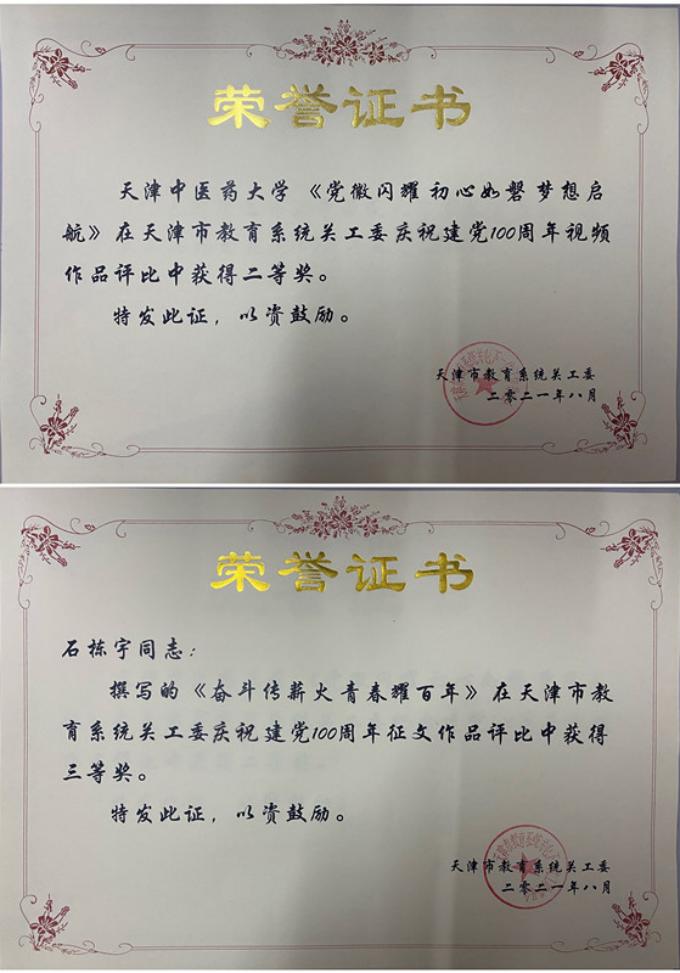 荣誉证书
天津中医药大学《党徽闪耀初心如磐梦想启
航》在天津市教育系统关工委庆祝建党100周年视频
作品评比中获得二等奖。
特发此证，以资鼓励。
天津市教育系统关工委
二零二一年八月
荣誉证书
石栋宇同志：
撰写的《奋斗传薪火青春耀百年》在天津市教
育系统关工委庆祝建党100周年征文作品评比中获得
三等奖。
特发此证，以资鼓励。
天津市教育系统关工委
二零二一年八月